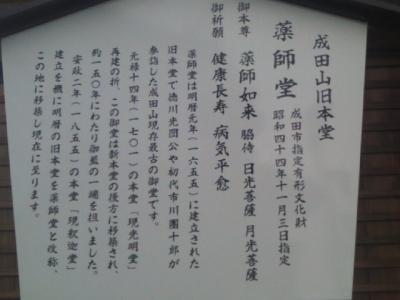 成田山旧本堂
薬師堂
成田市指定有形文化財
昭和四十四年十一月三日指定
御本尊 薬師如来 脇侍 日光菩薩 月光菩薩
御祈願 健康長寿 病気平愈
薬師堂は明暦元年(一六五五)に建立された
旧本堂で徳川光圀公や初代市川團十郎が
参詣した成田山現存最古の御堂です。
元禄十四年(一七〇一)の本堂「現光明堂」
再建の折、この御堂は新本堂の後方に移築され、
約一五〇年にわたり御藍の一端を担いました。
安政二年(一八五五)の本堂「現釈迦堂」
建立を機に明暦の旧本堂を薬師堂と改称、
この地に移築し現在に至ります。